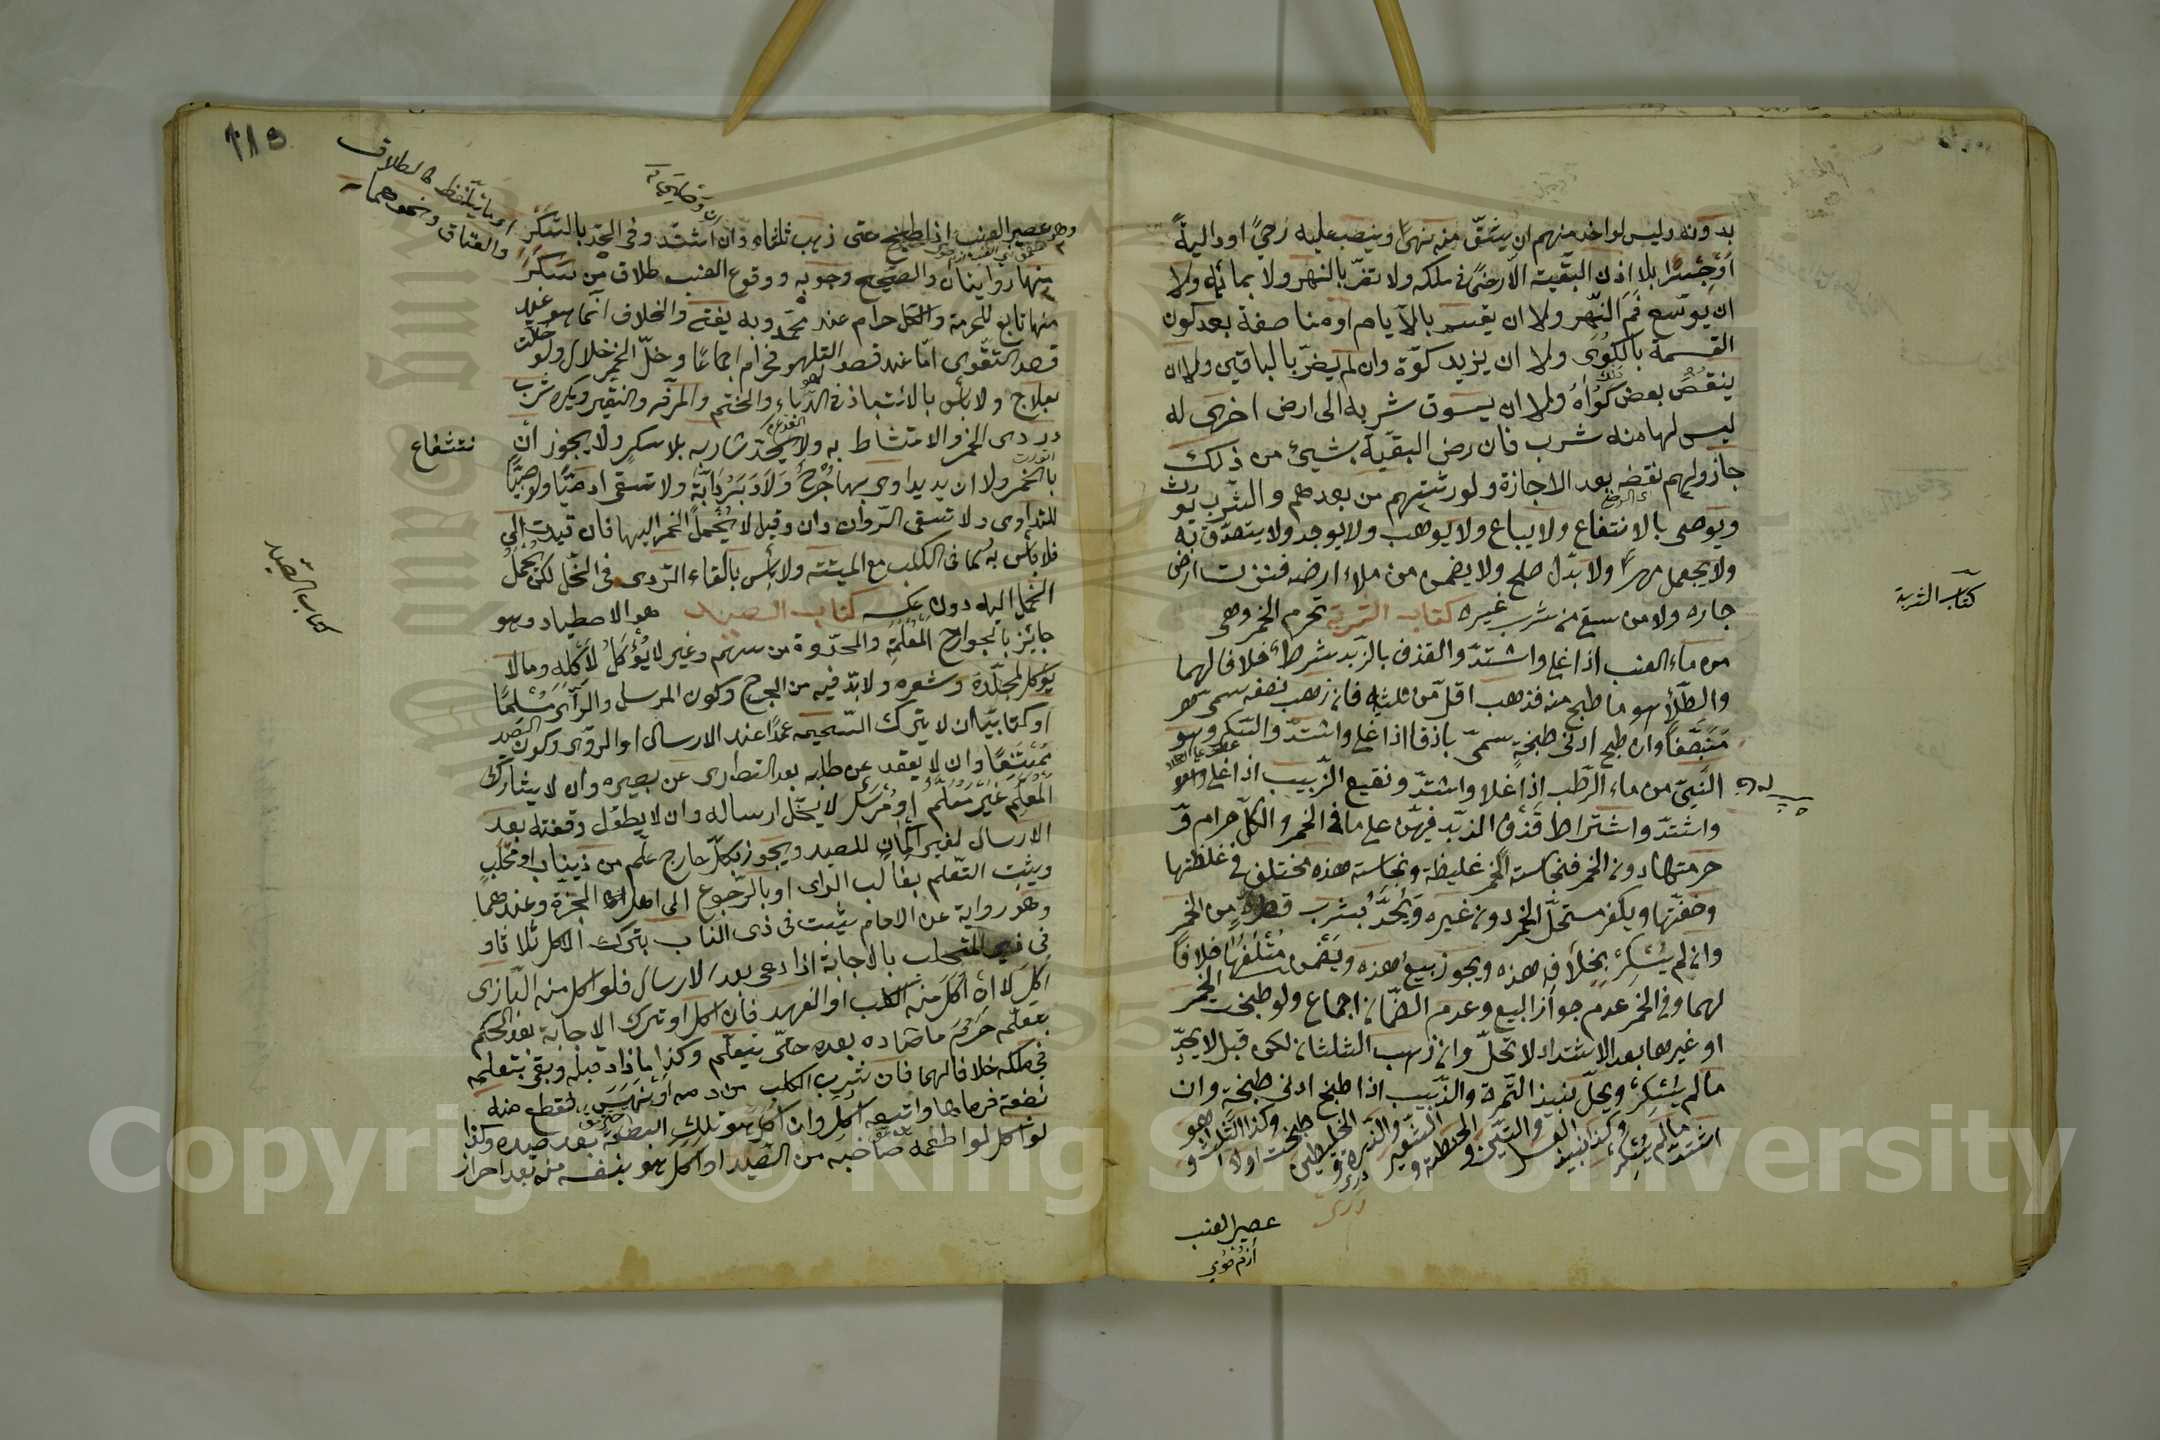 بدونه وليس لواحد منهم ان يشقّ منه نهرًا وينصب عليه رحيً او داليةً
أوجسرًا بلا اذن البقية الا رحيً في ملكه ولا تضرّ بالنهر ولا بمائه ولا
ان يوسّع فم النّهر ولا ان يقسم بالايام او مناصفة بعد كون
القسمة بالكوى ولا ان يزيد كوّة وان لم يضرّ بالباقين ولا ان
ينقص بعض كواه ولا ان يسوق شربه الى ارض اخرى له
ليس لها منه شرب فان رضى البقية بشيئ من ذلك
جاز ولهم نقضه بعد الاجازة ولورثتهم من بعدهم والشرب يورث
ويوصى بالانتفاع ولا يباع ولا يوهب ولا يوجر ولا يتصدّق به
ولا يجعل مهرًا ولا بدل صلح ولا يضمن من ملاء ارضه فنزت ارض
جاره ولا من سقى من شرب غيره كتاب الشربة تحرم الخمر وهي
من ماء العنب اذا غلى واشتدّ والقذف بالزبد شرط خلافا لهما
والطّلأ هو ما طبخ منه فذهب اقلّ من ثلثيه فان ذهب نصفه سمى
منصّفا وان طبخ ادنى طبخةٍ سمىّ باذقا اذا غلى واشتدّ والسّكر وهو
النيّ من ماء الرّطب اذا غلا واشتدّ ونقيع الزّبيب اذا غلى
واشتدّ واشتراط قذف الزبد فيهنّ على ما في الخمر والكلّ حرام و
حرمتها دون الخمر فنجاسة الخمر غليظة ونجاسة هذه مختلف في غلظتها
وخفّتها ويكفر مستحلّ الخمر دون غيره ويُحدّ بشرب قطرةٍ من الخمر
وان لم يسكر بخلاف هذه ويجوز بيع هذه ويضمن متلفها خلافًا
لهما وفي الخمر عدم جواز البيع وعدم الضّمان اجماع ولو طبخت الخمر
او غيرها بعد الاشتداد لا تحلّ وان ذهب الثلثان لكن قيل لا يحدّ
ما لم يسكر ويحلّ نبيذ التّمر والزّبيب اذا طبخ ادنى طبخةٍ وان
اشتدّ ما لم يسكر وكذا نبيذ العسل والتّين والحنطة والشّعير والذّرة والخليطين طبخت اولا وكذا المثلّث وهو
عصير العنب
كتاب الشربة
وهو عصير العنب اذا طبخ حتى ذهب ثلثاه وان اشتدّ وفي الحدّ بالسّكر
منها روايتان والصّحيح وجوبه ووقوع طلاق من سكر
منها تابع للحرمة والكل حرام عند محمّد وبه يفتى والخلاف انما هو عند
قصد التقوى امّا عند قصد التلهو فحرام اجماعًا وخلّ الخمر حلال ولو خلّلت
بعلاج ولا بأس بالانتباذ في الدبّاء والحنتم والمزفّت والنقير ويكره شرب
دردى الخمر والامتشاط به ولا يحدّ شاربه بلا سكر ولا يجوز
نتفاع
بالخمر ولا ان يداوى بها جرحٌ ولا دبر دابّة ولا تسقى ادميًّا ولو صبيًّا
للتداوى ولا تسقى الدّوابّ وقيل لا يحمل الخمر اليها فان قيدت الى
فلا بأس به كما في الكلب مع الميتة ولا بأس بالقاء الدّردى في الخلّ لكن يحمل
الخلّ اليه دون عكسه كتاب الصيد هو الاصطياد وهو
جائز بالجوارح المعلّمة والمحدّدة من سهم وغير لا يؤكل لاكله وما لا
يؤكل لجلده وشعره ولا بدّ فيه من الجرح وكون المرسل والرامى مسلمًا
او كتابيًّا وان لا يترك التسمية عمدًا عند الارسال او الرّمى وكون الصّيد
ممتنعًا وان لا يقعد عن طلبه بعد التّوارى عن بصره وان لا يشارك
المعلّم غير معلّم او مرسل لا يحلّ ارساله وان لا يطول وقفته بعد
الارسال لغير اكمان للصيد ويجوز بكلّ جارح علّم من ذي ناب او مخلب
ويثبت التّعلّم بغالب الراى او بالرّجوع الى اهل الخبرة وعندهما
وهو رواية عن الامام يثبت في ذى النّاب بترك الاكل ثلاثا و
في ذى المخلب بالاجابة اذا دعى بعد الارسال فلو اكل منه البازى
اكل لا ان اكل منه الكلب او الفهد فان اكل او ترك الاجابة بعد الحكم
بتعلّمه حرم ما صاده بعده حتّى يتعلّم وكذا ما صاد قبله وبقى
في ملكه خلافا لهما فان شرب الكلب من دمه او نهس فقطع منه
بضعة فرماها واتبعه اكل وان اكل هو تلك البضعة بعد صيده وكذا
لو اكل لو اطعمه صاحبه من الصّيد او اكل هو بنفسه منه بعد احراز
كتاب الصيد
Copyright © King Saud University